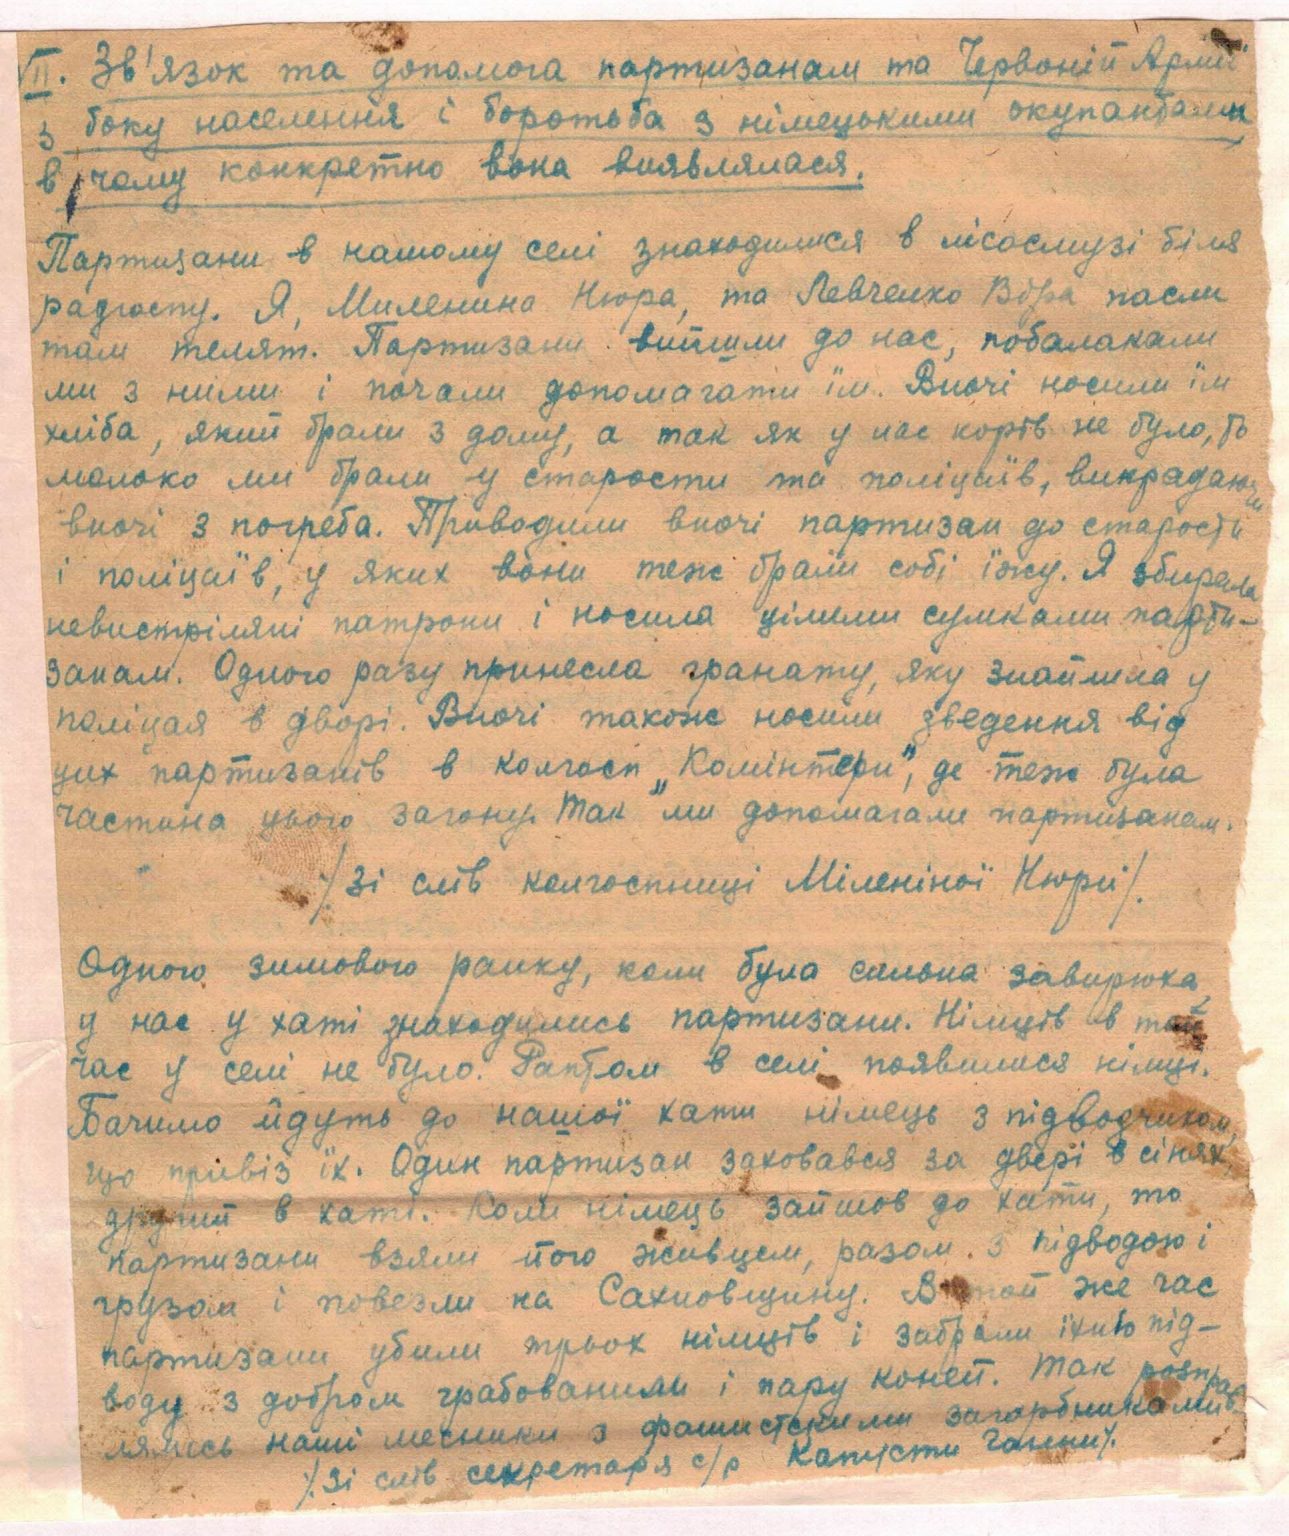 VII. Зв'язок та допомога партизанам та Червоній Армії
з боку населення і боротьба з німецькими окупантами
в чому конкретно вона виявлялася.
Партизани в нашому селі знаходилися в лісосмузі біля
радгоспу. Я, Миленина Нюра, та Левченко Віра пасли
там телят. Партизани вийшли до нас, побалакали
ми з ними і почали допомагати їм. Вночі носили їм
хліба, який брали з дому, а так як у нас корів не було, то
молоко ми брали у старости та поліцаїв, викрадаючи
вночі з погреба. Приводили вночі партизан до старости
і поліцаїв, у яких вони теж брали собі їжу. Я збирала
невистріляні патрони і носила цілими сумками парти-
занам. Одного разу принесла гранату, яку знайшла у
поліцая в дворі. Вночі також носили зведення від
цих партизанів в колгосп „Комінтерн", де теж була
частина цього загону. Так ми допомагали партизанам.
/Зі слів колгоспниці Міленіної Нюри/.
Одного зимового ранку, коли була сильна завирюха
у нас у хаті знаходились партизани. Німців в той
час у селі не було. Раптом в селі появилися німці.
Бачимо йдуть до нашої хати німець з підводчиком,
що привіз їх. Один партизан заховався за двері в сінях,
другий в хаті. Коли німець зайшов до хати, то
партизани взяли його живцем, разом з підводою і
грузом і повезли на Сахновщину. В той же час
партизани убили трьох німців і забрали їхню під-
воду з добром грабованими і пару коней. Так розправ
лялись наші месники з фашистськими загарбниками
/Зі слів секретаря с/р Капусти Ганни/.